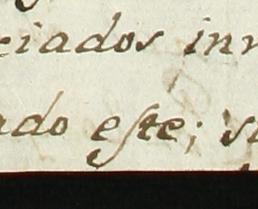 ciados inn
ado eſte; s